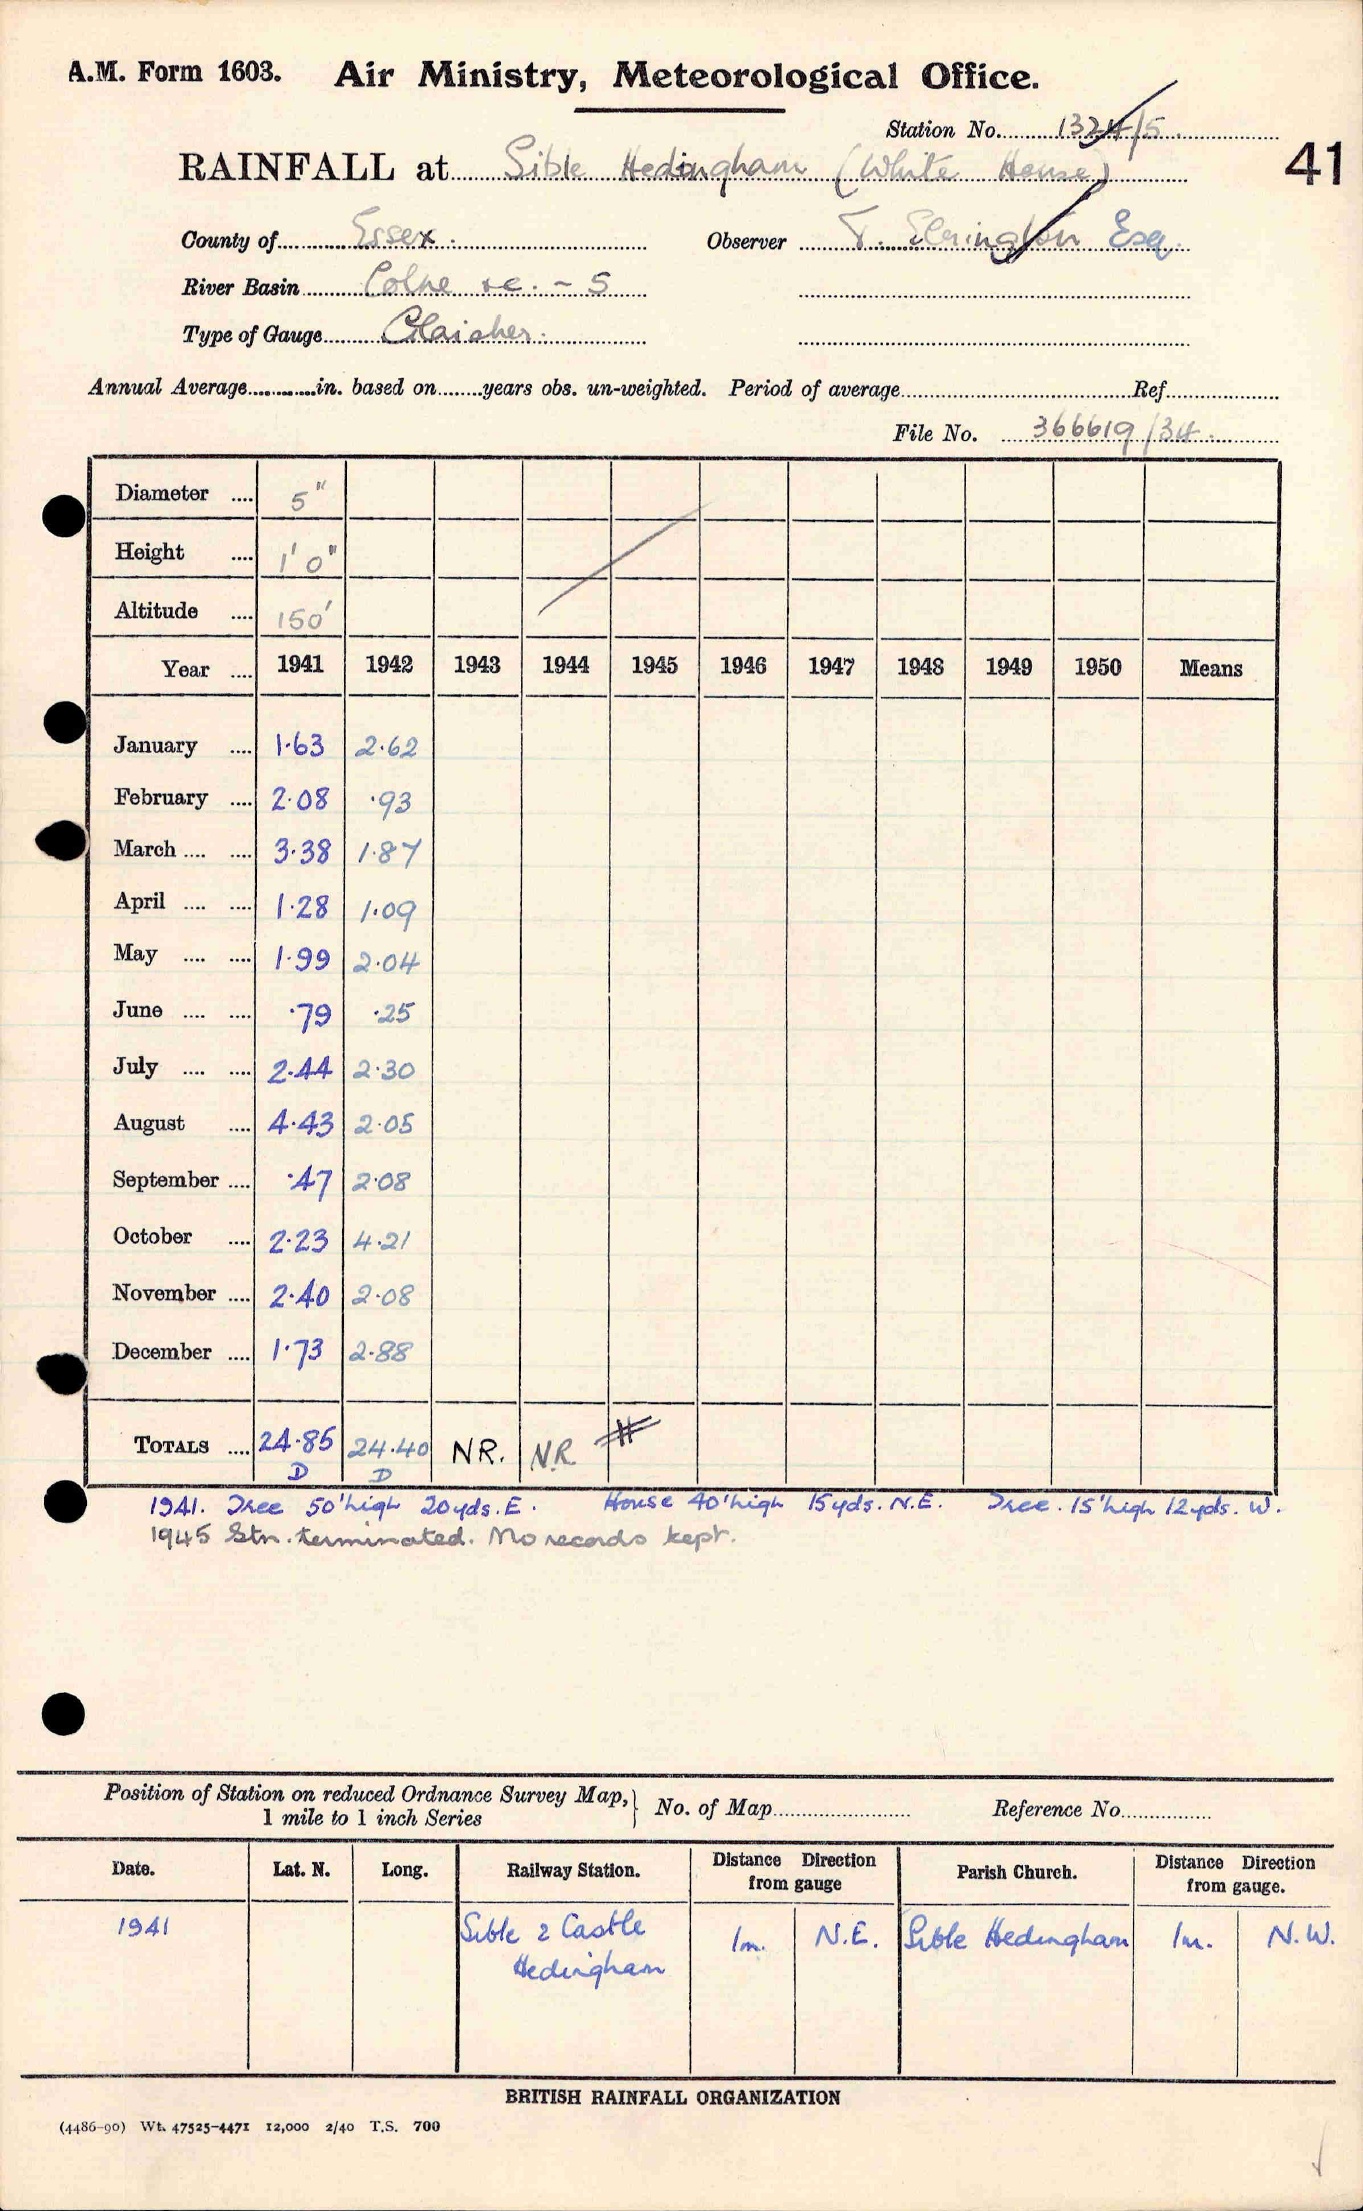 A.M. Form 1603. Air Ministry, Meteorological Office.
Station No. 1324/5.
41
RAINFALL at Sible Hedingham (White House)
County of Essex. Observer T. Elrington Esq.
River Basin Colne &c. - 5
Type of Gauge Glaisher.
Annual Average in. based on years obs. un-weighted. Period of average Ref.
File No. 366619/34.
Diameter 5"
Height 1' 0"
Altitude 150'
Year 1941 1942 1943 1944 1945 1946 1947 1948 1949 1950 Means
January 1.63 2.62
February 2.08 .93
March 3.38 1.87
April 1.28 1.09
May 1.99 2.04
June .79 .25
July 2.44 2.30
August 4.43 2.05
September .47 2.08
October 2.23 4.21
November 2.40 2.08
December 1.73 2.88
TOTALS 24.85 24.40 NR. N.R.
D D
1941. Tree 50' high 20yds. E. House 40' high 15yds. N.E. Tree. 15' high 12yds. W.
1945 Stn. terminated. No records kept.
Position of Station on reduced Ordnance Survey Map, 1 mile to 1 inch Series No. of Map Reference No.
Date. Lat. N. Long. Railway Station. Distance Direction from gauge Parish Church. Distance Direction from gauge.
1941 Sible & Castle Hedingham 1m. N.E. Sible Hedingham 1m. N.W.
BRITISH RAINFALL ORGANIZATION
(4486-90) Wt. 47525-4471 12,000 2/40 T.S. 700